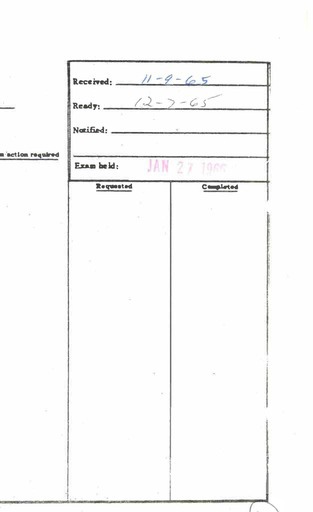 Received: 11-9-65
Ready: 12-7-65
Notified:
action required
Exam held: JAN 27 1966
Requested Completed